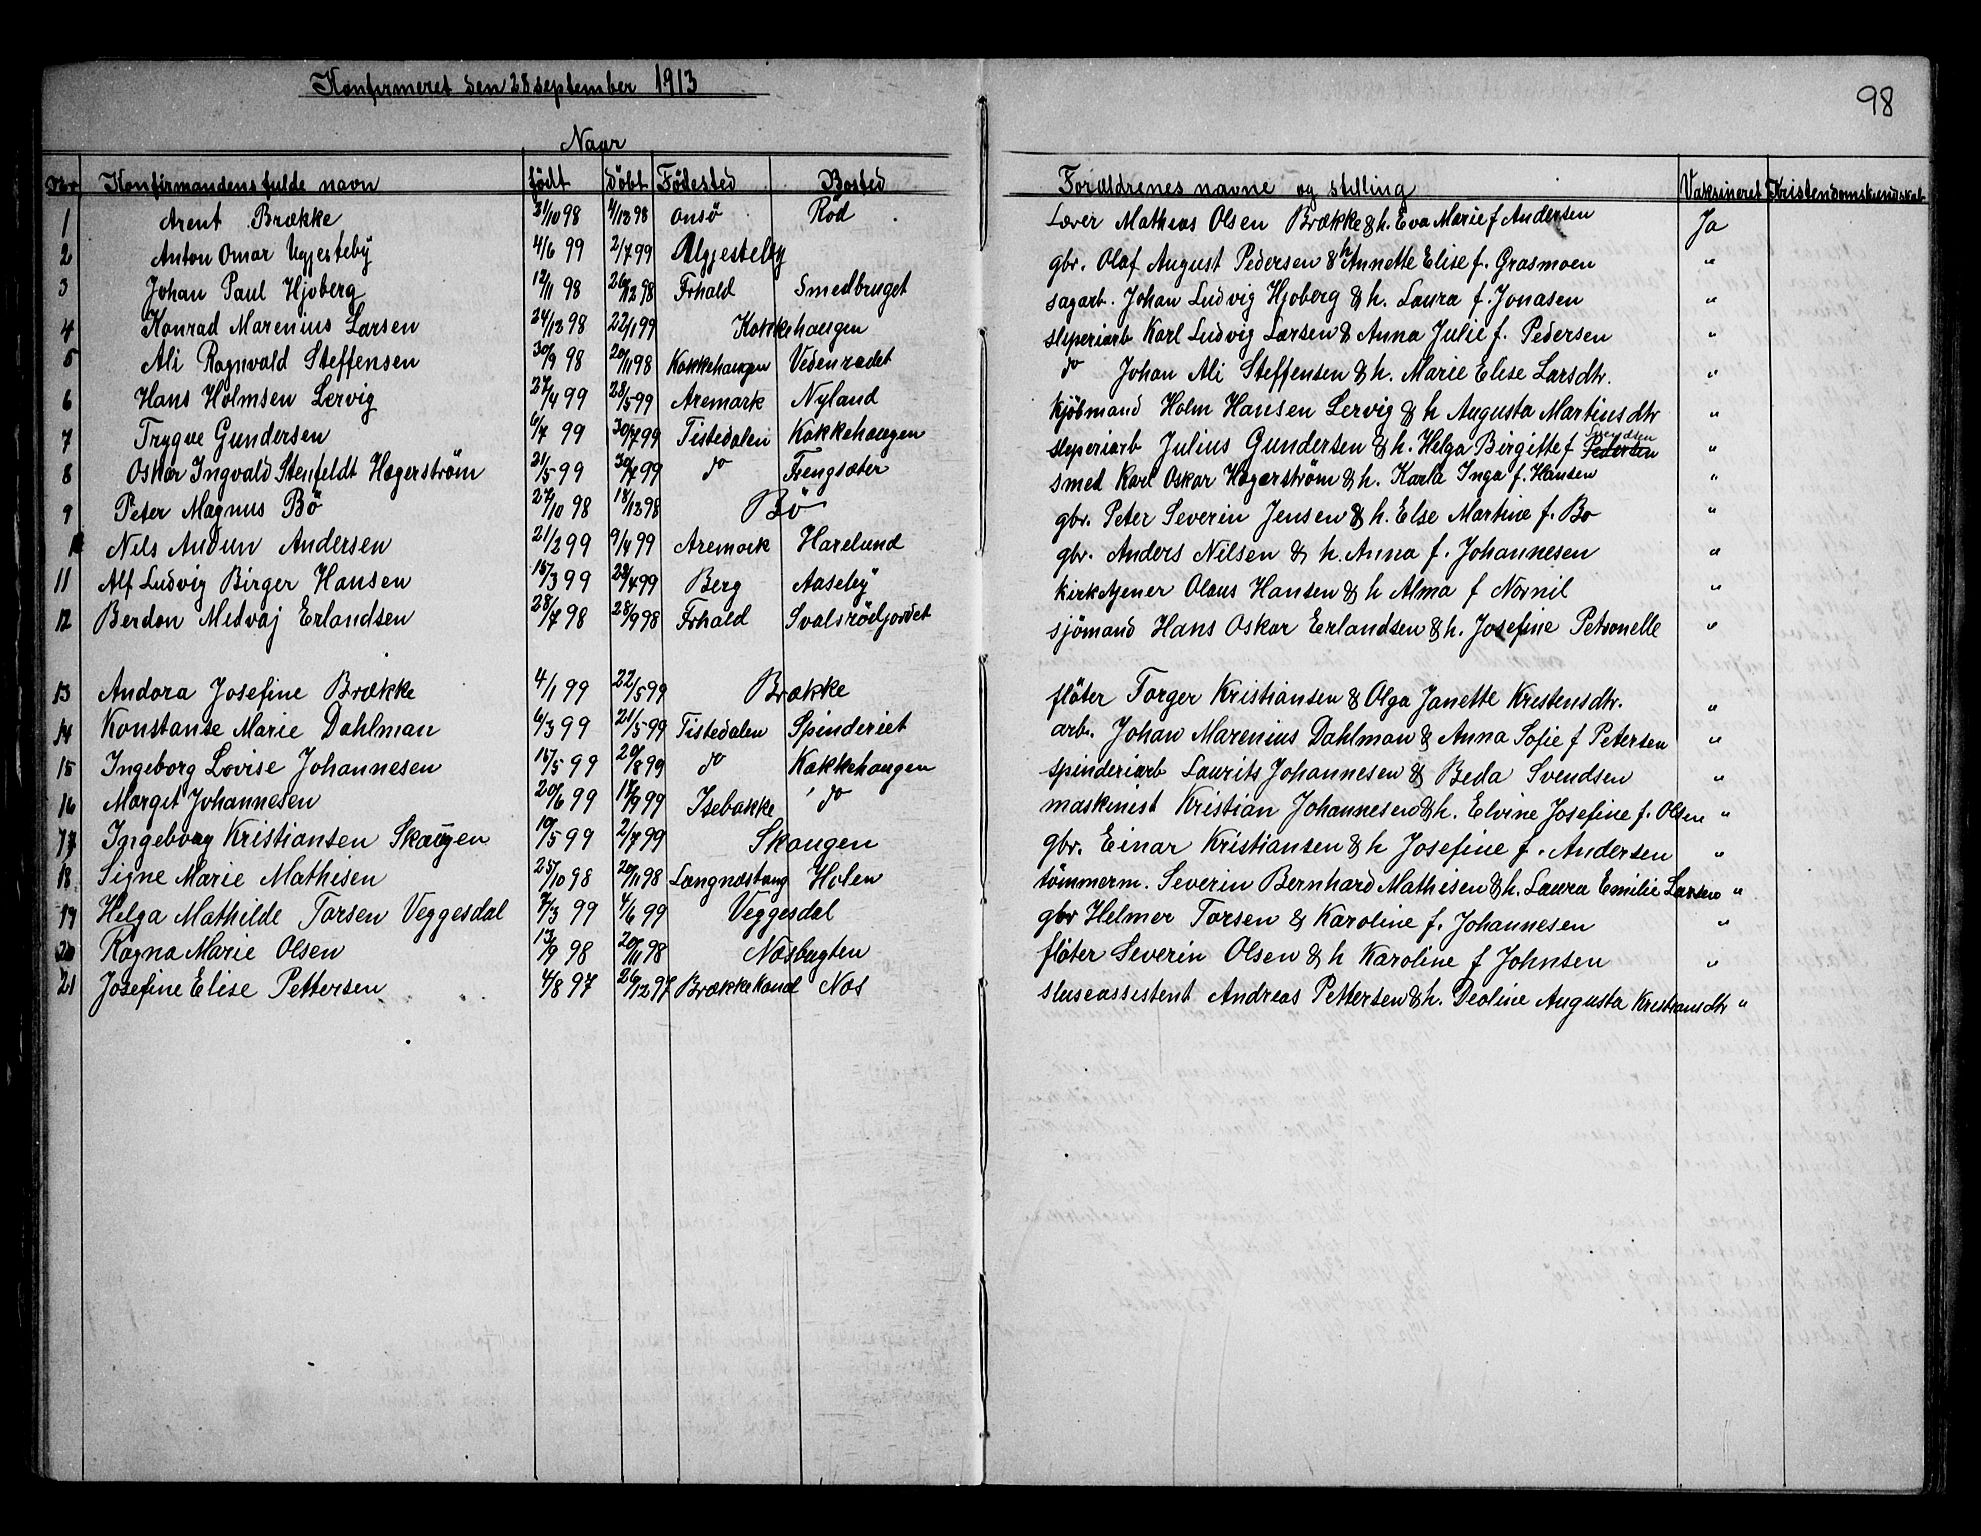 Konfirmeret den 28 september 1913
98
Naar
Nr. Konfirmandens fulde navn födt döbt Födested Bosted Forældrenes navne og stilling Vaksineret Kristendomskundskab
1 Arent Brække 31/10 98 4/12 98 Onsö Röd Lærer Mathias Olsen Brække & h. Eva Marie f Andersen Ja
2 Anton Omar Ugjesteby 4/6 99 2/7 99 Ugjesteby gbr. Olaf August Pedersen & h Annette Elise f. Grasmoen "
3 Johan Paul Hjoberg 12/11 98 26/12 98 Frhald Smedbruget sagarb. Johan Ludvig Hjoberg & h. Laura f. Jonasen "
4 Konrad Marenius Larsen 24/12 98 22/1 99 Kokkehaugen sliperiarb Karl Ludvig Larsen & Anna Julie f. Pedersen "
5 Ali Ragnvald Steffensen 30/9 98 20/11 98 Kokkehaugen Vedenradet do Johan Ali Steffensen & h. Marie Elise Larsdtr. "
6 Hans Holmsen Lervig 27/4 99 28/5 99 Aremark Nyland Kjöbmand Holm Hansen Lervig & h Augusta Martinsdtr "
7 Trygve Gundersen 6/7 99 30/7 99 Tistedalen Kokkehaugen sliperiarb Julius Gundersen & h. Helga Birgitte f Svendsen Pedersen "
8 Oskar Ingvald Stenfeldt Hægerström 21/5 99 30/7 99 do Fengsæter smed Karl Oskar Hægerström & h. Karla Inga f. Hansen "
9 Peter Magnus Bö 27/10 98 18/12 98 Bö gbr. Peter Severin Jensen & h. Else Martine f. Bö "
10 Nils Audun Andersen 21/2 99 9/4 99 Aremark Harelund gbr. Anders Nilsen & h. Anna f. Johannesen "
11 Alf Ludvig Birger Hansen 15/3 99 29/4 99 Berg Aaseby kirketjener Olaus Hansen & h Alma f Nornil "
12 Berdon Medvaj Erlandsen 28/7 98 28/9 98 Frhald Svalsrödjordet sjömand Hans Oskar Erlandsen & h. Josefine Petronelle "
13 Andora Josefine Brække 4/1 99 22/5 99 Brække flöter Torger Kristiansen & Olga Janette Kristensdtr. "
14 Konstanse Marie Dahlman 6/3 99 21/5 99 Tistedalen Spinderiet arb. Johan Marenius Dahlman & Anna Sofie f Petersen "
15 Ingeborg Lovise Johannesen 15/5 99 20/8 99 do Kokkehaugen spinderiarb Laurits Johannesen & Beda Svendsen "
16 Margit Johannesen 20/6 99 17/9 99 Isebakke do maskinist Kristian Johannesen & h. Elvine Josefine f. Olsen "
17 Ingeborg Kristiansen Skaugen 19/5 99 2/7 99 Skaugen gbr. Einar Kristiansen & h Josefine f. Andersen "
18 Signe Marie Mathisen 25/10 98 20/11 98 Langnæstang Holen tömmerm. Severin Bernhard Mathisen & h. Laura Emilie Larsen "
19 Helga Mathilde Torsen Veggesdal 7/3 99 4/6 99 Veggesdal gbr Helmer Torsen & Karoline f. Johannesen "
20 Ragna Marie Olsen 13/9 98 20/11 98 Næsbugten flöter Severin Olsen & h Karoline f Johnsen "
21 Josefine Elise Pettersen 4/8 97 26/12 97 Brække Kanal Næs sluseassistent Andreas Pettersen & h. Deoline Augusta Kristiansdtr "